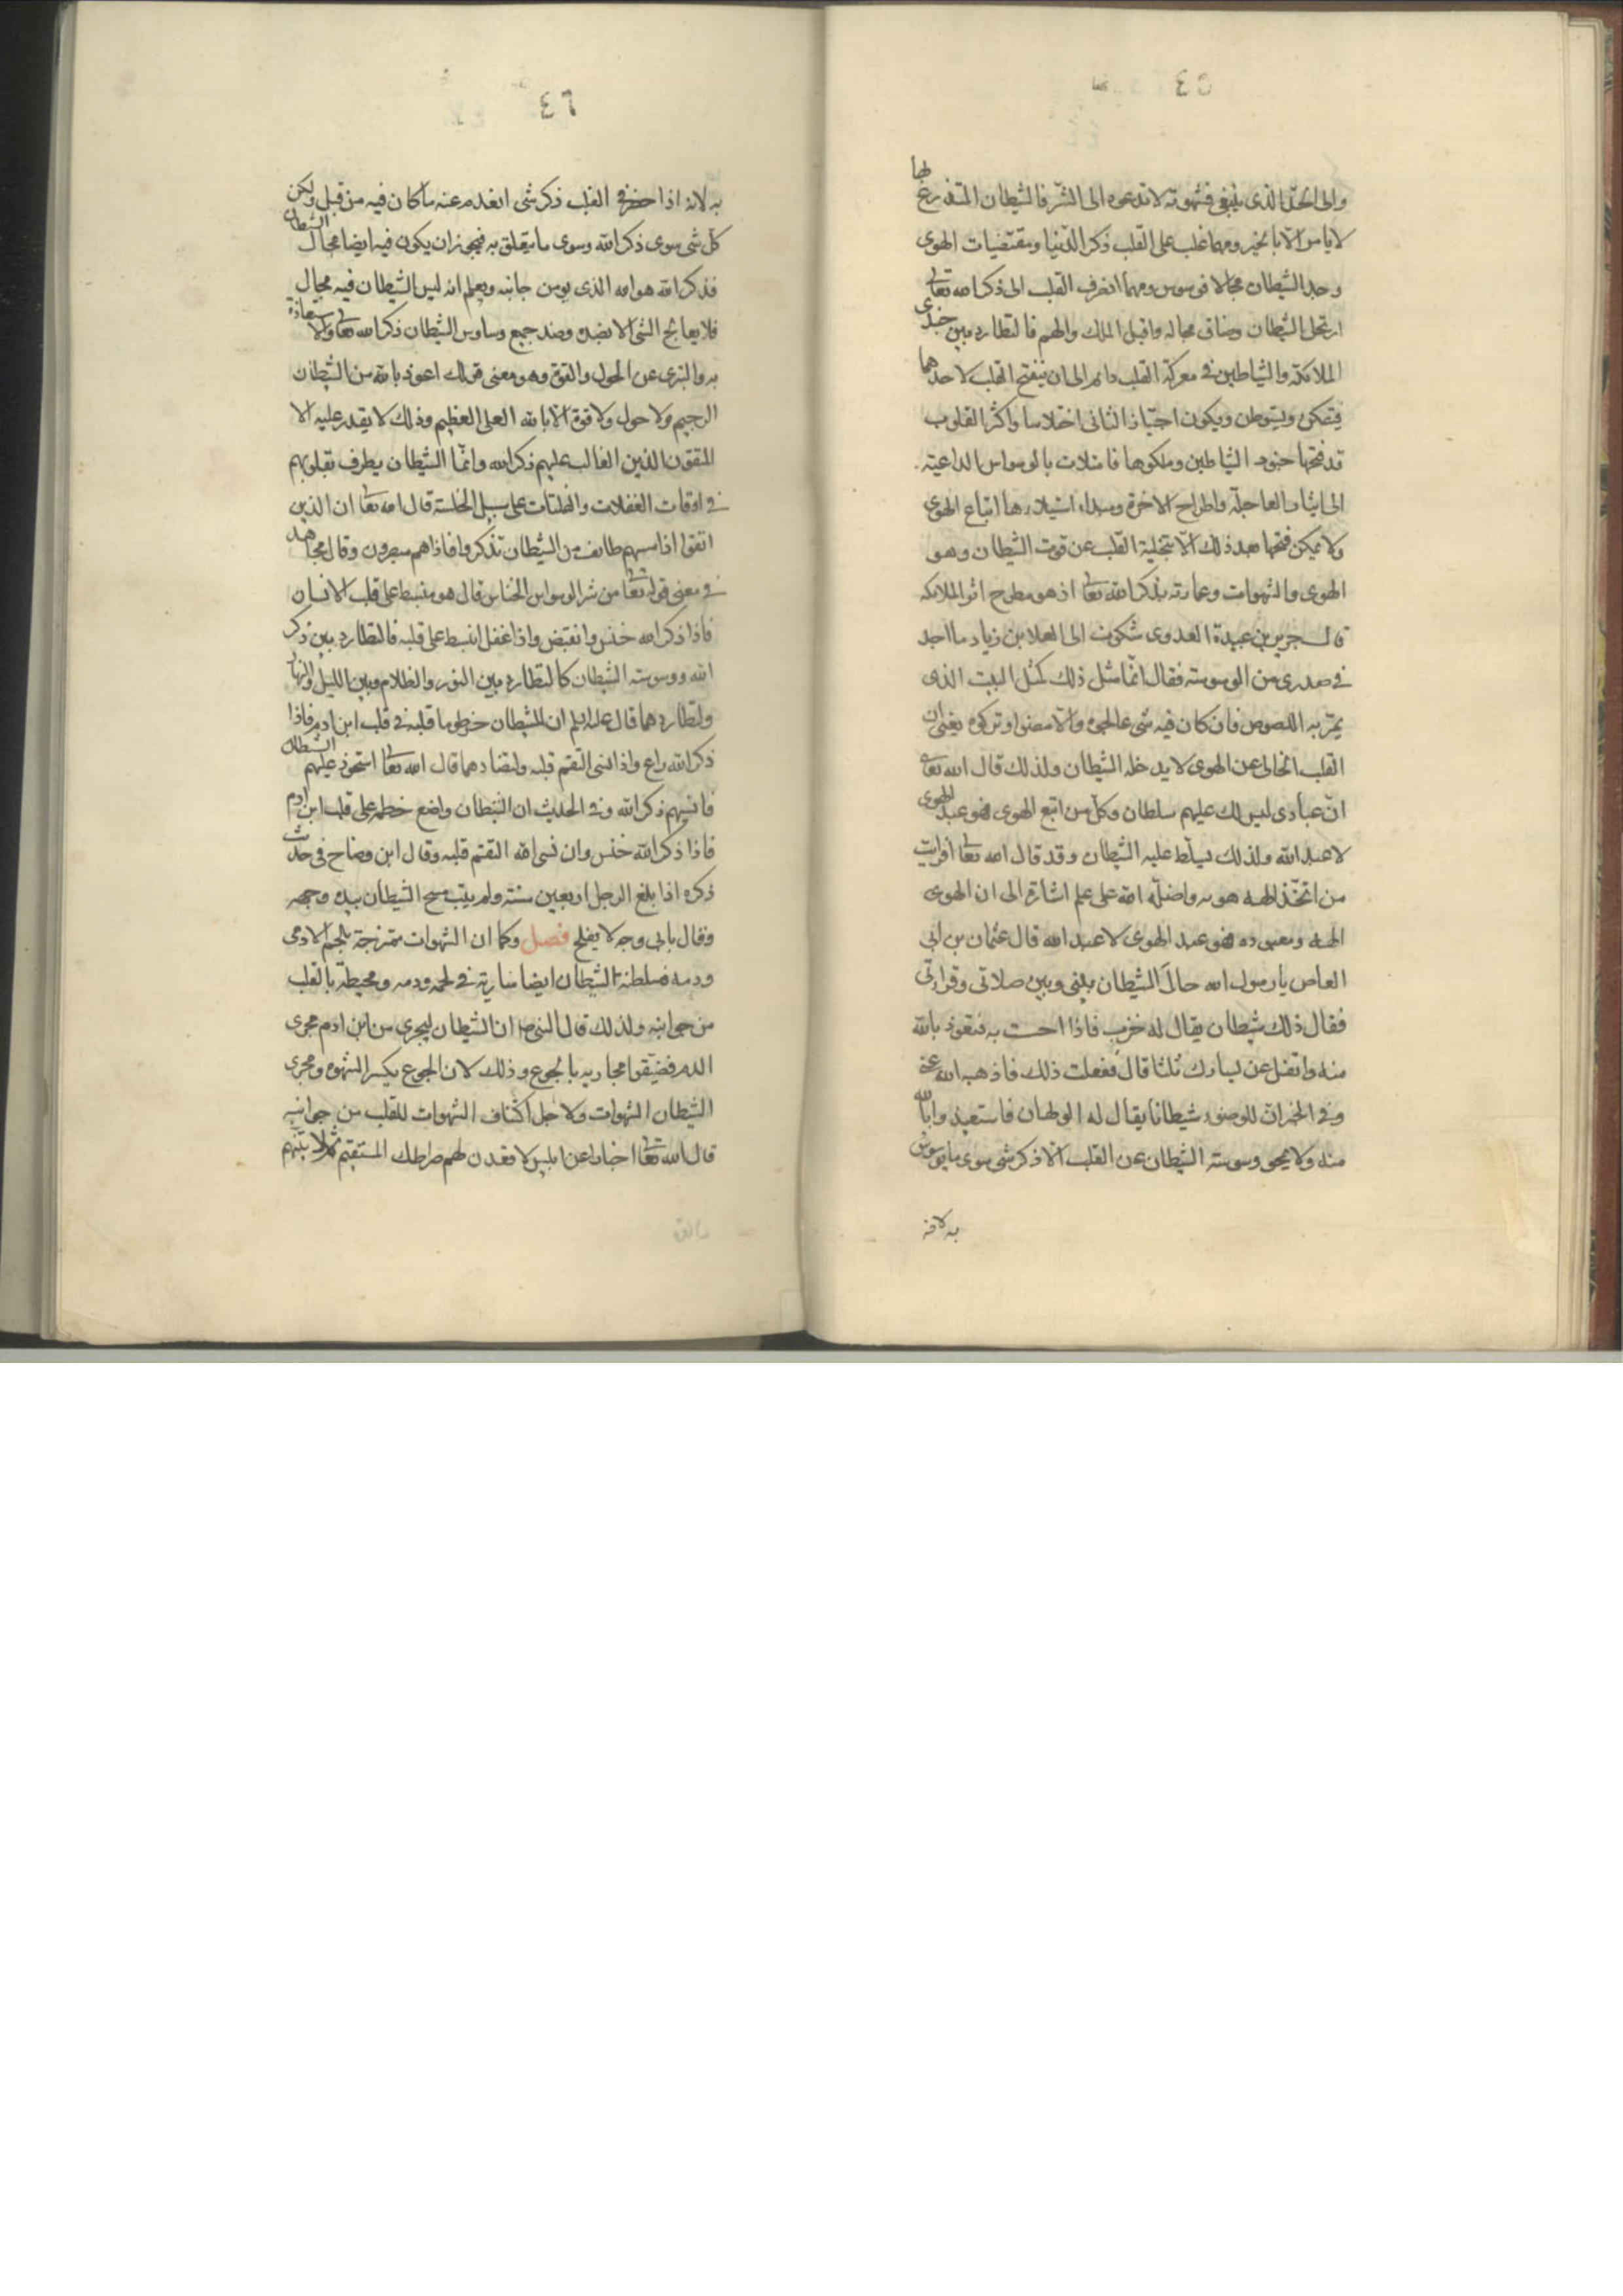 ٤٥
والى الحدّ الذى ينبغى فشهوته لا تدعوه الى الشرّ فالشيطان المتدرع بها
لا يامر الا بالخير ومهما غلب على القلب ذكر الدّنيا ومقتضيات الهوى
وجد الشيطان مجالا فوسوس ومهما انصرف القلب الى ذكر الله تعالى
ارتحل الشيطان وضاق مجاله واقبل الملك والهم فالتطارد بين جندى
الملائكة والشياطين فى معركة القلب دائم الى ان ينفتح القلب لاحدهما
فيتمكن ويستوطن ويكون اجتياز الثانى اختلاسا واكثر القلوب
قد فتحها جنود الشياطين وملكوها فامتلات بالوسواس الداعية
الى ايثار العاجلة واطراح الاخرة ومبداء استيلاءها اتباع الهوى
ولا يمكن فتحها بعد ذلك الا بتخلية القلب عن قوت الشيطان وهو
الهوى والشهوات وعمارته بذكر الله تعا اذ هو مطرح اثر الملائكه
قال جرير بن عبيدة العدوى شكوت الى العلا بن زياد ما اجد
فى صدرى من الوسوسة فقال انّما مثل ذلك كمثل البيت الذى
يمرّ به اللصوص فان كان فيه شى عالجوه والا مضوا وتركوه يعنى ان
القلب الخالى عن الهوى لا يدخله الشيطان ولذلك قال الله تعالى
انّ عبادى ليس لك عليهم سلطان وكلّ من اتبع الهوى فهو عبد الهوى
لا عبد الله ولذلك يسلّط عليه الشيطان وقد قال الله تعا افرايت
من اتخّذ الهه هويه واضلّه الله على علم اشارة الى ان الهوى
الهه ومعبوده فهو عبد الهوى لا عبد الله قال عثمان بن ابى
العاص يا رسول الله حال الشيطان بينى وبين صلاتى وقراءتى
فقال ذلك شيطان يقال له خنزب فاذا احست به فتعوّذ بالله
منه واتفل عن يسارك ثلثا قال ففعلت ذلك فاذهبه الله عنّى
وفى الخبر ان للوضوء شيطانا يقال له الولهان فاستعيذوا بالله
منه ولا يمحو وسوسة الشيطان عن القلب الا ذكر شى سوى ما يوسوس
به لانه
٤٦
به لانه اذا حضر فى القلب ذكر شى انعدم عنه ما كان فيه من قبل ولكن
كلّ شى سوى ذكر الله وسوى ما يتعلق به فيجوز ان يكون فيه ايضا مجال الشيطان
فذكر الله هو الذى يومن جانبه ويعلم انه ليس للشيطان فيه مجال
فلا يعالج الشى الا بضده وضد جميع وساوس الشيطان ذكر الله تعا والاستعاذة
به والتبرى عن الحول والقوة وهو معنى قولك اعوذ بالله من الشيطان
الرجيم ولا حول ولا قوة الا بالله العلى العظيم وذلك لا يقدر عليه الا
المتقون الذين الغالب عليهم ذكر الله وانّما الشيطان يطرف بقلوبهم
فى اوقات الغفلات والفلتات على سبيل الخلسة قال الله تعا ان الذين
اتقوا اذا مسهم طائف من الشيطان تذكروا فاذا هم مبصرون وقال مجاهد
فى معنى قوله تعا من شر الوسواس الخناس قال هو منبسط على قلب الانسان
فاذا ذكر الله خنس وانقبض واذا غفل انبسط على قلبه فالتطارد بين ذكر
الله ووسوسة الشيطان كالتطارد بين النور والظلام وبين الليل والنهار
ولتطاردهما قال عليه السلم ان للشيطان خرطوما قلبه فى قلب ابن ادم فاذا
ذكر الله راع واذا نسى التقم قلبه ولتضادهما قال الله تعا استحوذ عليهم الشيطان
فانسيهم ذكر الله وفى الحديث ان الشيطان واضع خطمه على قلب ابن ادم
فاذا ذكر الله خنس وان نسى الله التقم قلبه وقال ابن وضاح فى حديث
ذكره اذا بلغ الرجل اربعين سنة ولم يتب مسح الشيطان بيده وجهه
وقال بابى وجه لا يفلح فصل وكما ان الشهوات ممتزجة بلحم الادمى
ودمه فسلطنة الشيطان ايضا سارية فى لحمه ودمه ومحيطة بالقلب
من جوانبه ولذلك قال النبى ان الشيطان ليجرى من ابن ادم مجرى
الدم فضيّقوا مجاريه بالجوع وذلك لان الجوع يكسر الشهوه ومجرى
الشيطان الشهوات ولاجل اكتناف الشهوات للقلب من جوانبه
قال الله تعا اخبارا عن ابليس لاقعدن لهم صراطك المستقيم ثم لاتينهم